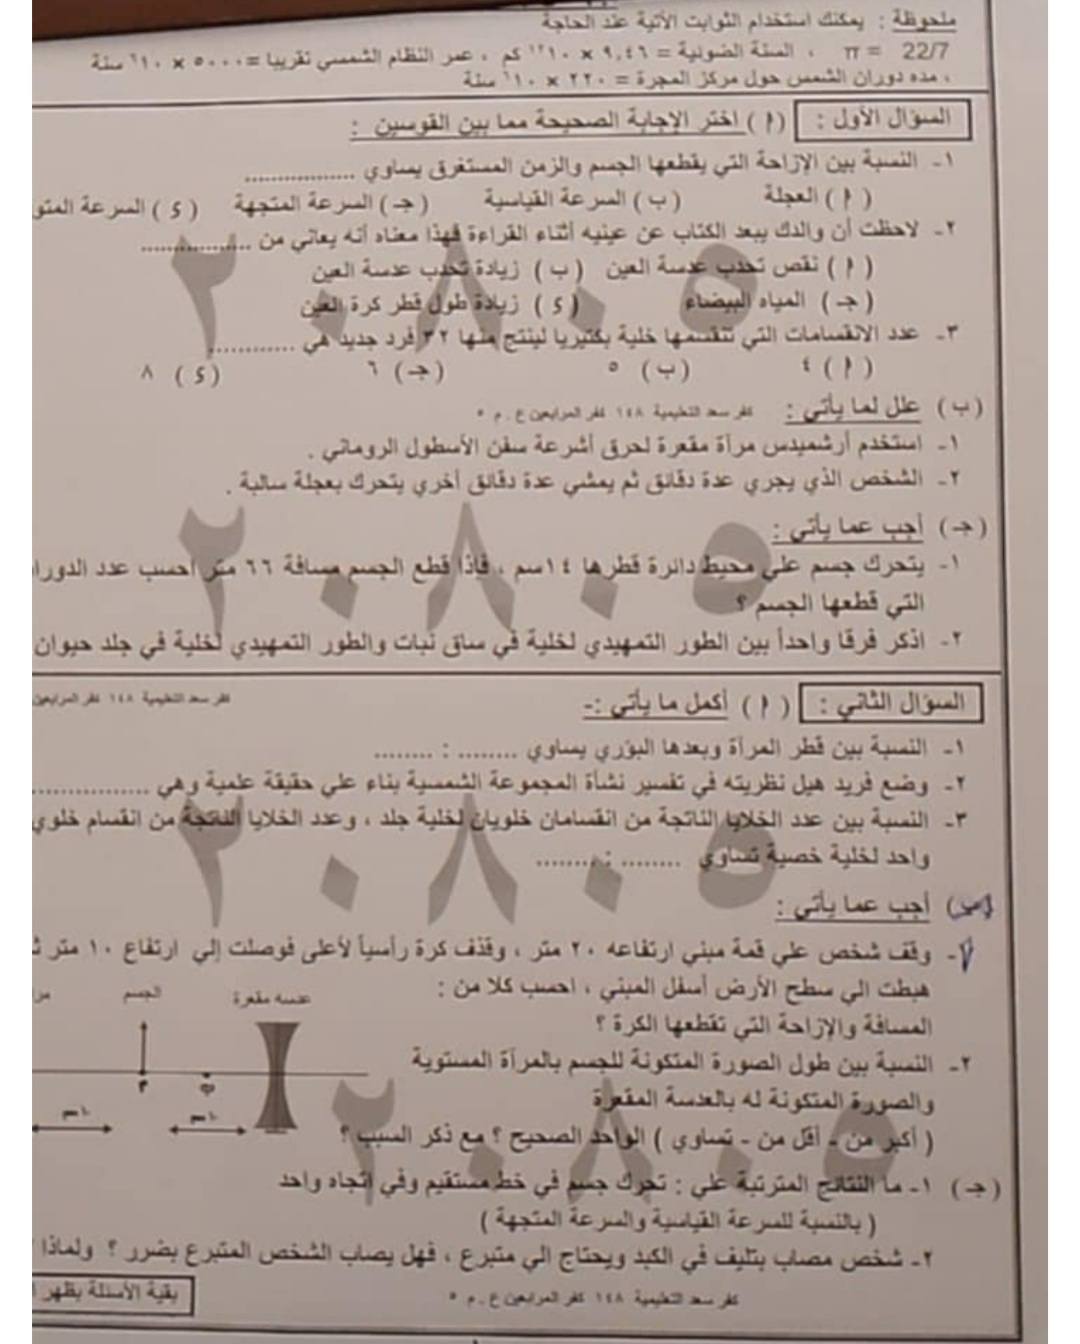 ملحوظة : يمكنك استخدام الثوابت الآتية عند الحاجة
π = 22/7 ، السنة الضوئية = ٩,٤٦ × ١٠¹² كم ، عمر النظام الشمسي تقريبا = ٥٠٠٠ × ١٠⁶ سنة
، مده دوران الشمس حول مركز المجرة = ٢٢٠ × ١٠⁶ سنة
السؤال الأول : ( أ ) اختر الإجابة الصحيحة مما بين القوسين :
١- النسبة بين الإزاحة التي يقطعها الجسم والزمن المستغرق يساوي ................
( أ ) العجلة ( ب ) السرعة القياسية ( جـ ) السرعة المتجهة ( د ) السرعة المتو
٢- لاحظت أن والدك يبعد الكتاب عن عينيه أثناء القراءة فهذا معناه أنه يعاني من ................
( أ ) نقص تحدب عدسة العين ( ب ) زيادة تحدب عدسة العين
( جـ ) المياه البيضاء ( د ) زيادة طول قطر كرة العين
٣- عدد الانقسامات التي تنقسمها خلية بكتيريا لينتج منها ٣٢ فرد جديد هي ............
( أ ) ٤ ( ب ) ٥ ( جـ ) ٦ ( د ) ٨
( ب ) علل لما يأتي : كفر سعد التعليمية ١٤٨ كفر المرابعين ع . م ٥
١- استخدم أرشميدس مرآة مقعرة لحرق أشرعة سفن الأسطول الروماني .
٢- الشخص الذي يجري عدة دقائق ثم يمشي عدة دقائق أخري يتحرك بعجلة سالبة .
( جـ ) أجب عما يأتي :
١- يتحرك جسم علي محيط دائرة قطرها ١٤سم ، فإذا قطع الجسم مسافة ٦٦ متر احسب عدد الدورا
التي قطعها الجسم ؟
٢- اذكر فرقا واحداً بين الطور التمهيدي لخلية في ساق نبات والطور التمهيدي لخلية في جلد حيوان
كفر سعد التعليمية ١٤٨ كفر المرابعين
السؤال الثاني : ( أ ) أكمل ما يأتي :-
١- النسبة بين قطر المرآة وبعدها البؤري يساوي ........ : ........
٢- وضع فريد هيل نظريته في تفسير نشأة المجموعة الشمسية بناء علي حقيقة علمية وهي ................
٣- النسبة بين عدد الخلايا الناتجة من انقسامان خلويان لخلية جلد ، وعدد الخلايا الناتجة من انقسام خلوي
واحد لخلية خصية تساوي ........ : ........
أجب عما يأتي :
١- وقف شخص علي قمة مبني ارتفاعه ٢٠ متر ، وقذف كرة رأسياً لأعلى فوصلت إلي ارتفاع ١٠ متر ث
هبطت الي سطح الأرض أسفل المبني ، احسب كلا من :
المسافة والإزاحة التي تقطعها الكرة ؟
عدسه مقعرة الجسم مرآ
٢- النسبة بين طول الصورة المتكونة للجسم بالمرآة المستوية
والصورة المتكونة له بالعدسة المقعرة
( أكبر من - أقل من - تساوي ) الواحد الصحيح ؟ مع ذكر السبب ؟
( جـ ) ١- ما النتائج المترتبة علي : تحرك جسم في خط مستقيم وفي اتجاه واحد
( بالنسبة للسرعة القياسية والسرعة المتجهة )
٢- شخص مصاب بتليف في الكبد ويحتاج الي متبرع ، فهل يصاب الشخص المتبرع بضرر ؟ ولماذا
بقية الأسئلة بظهر ا
كفر سعد التعليمية ١٤٨ كفر المرابعين ع . م ٥
٢٠٨٠٥
٢٠٨٠٥
٢٠٨٠٥
٢٠٨٠٥